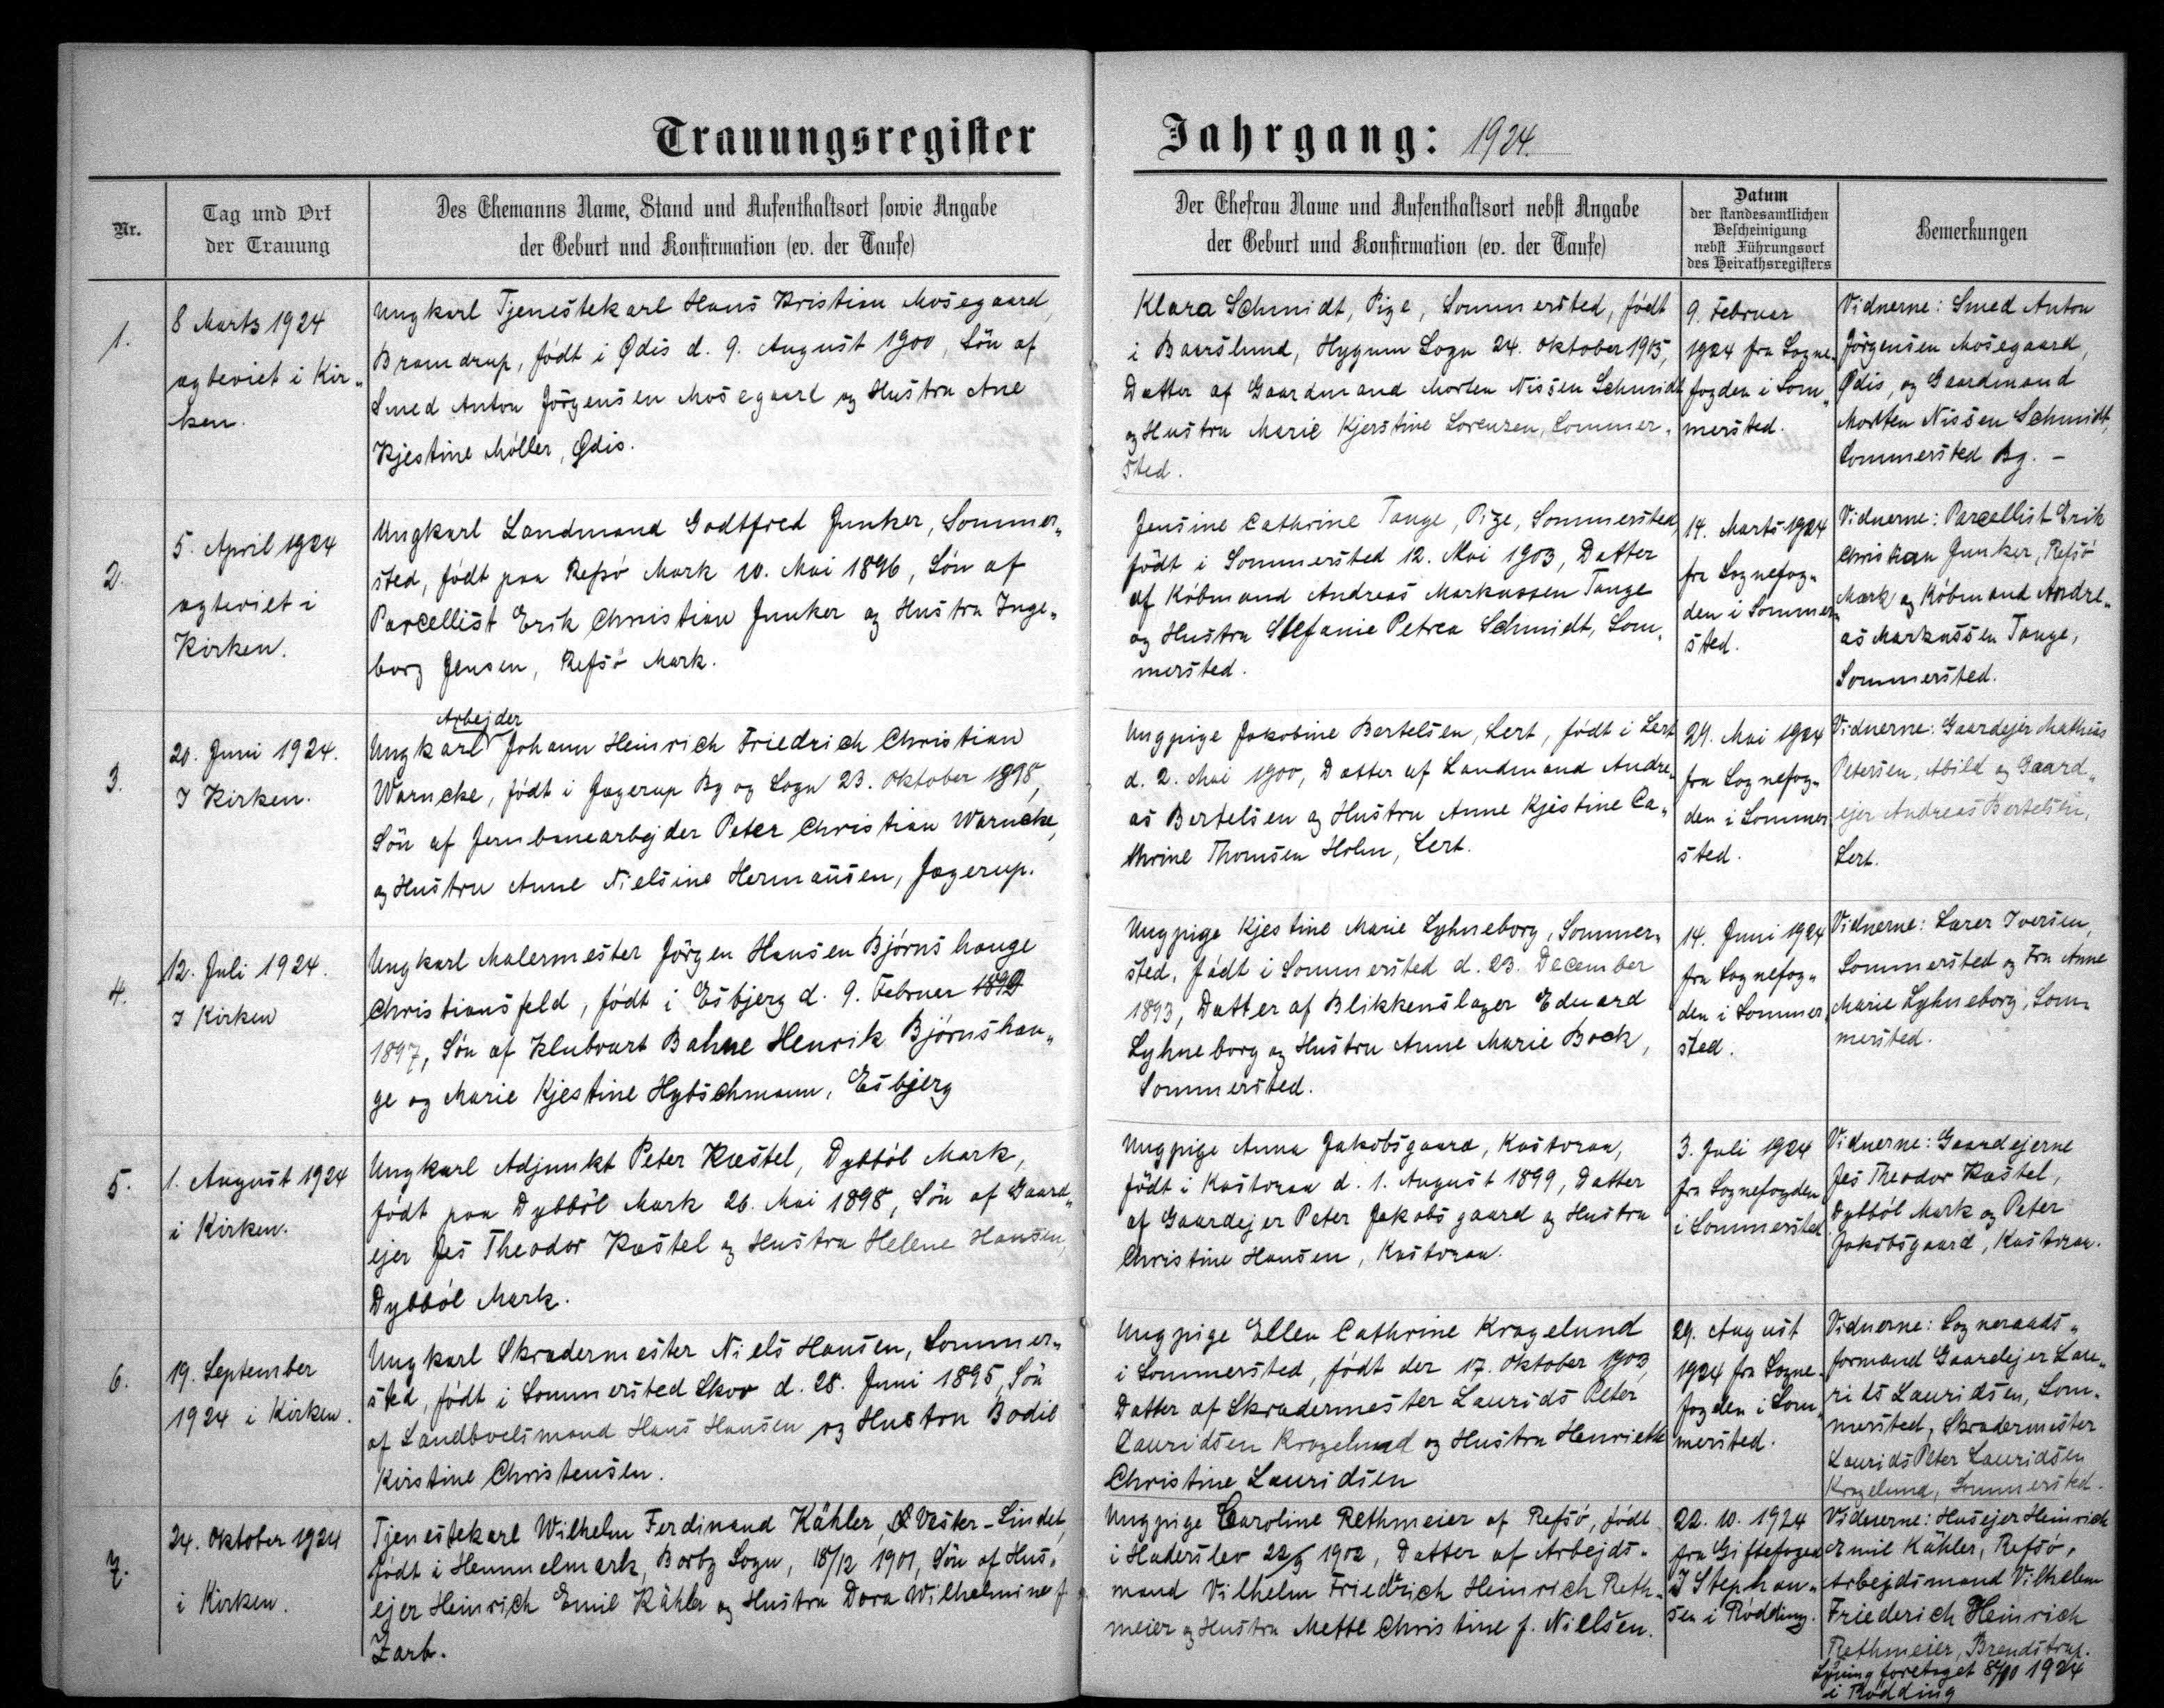 Trauungsregister
Jahrgang: 1924.
Nr.
Tag und Ort
der Trauung
Des Ehemanns Name, Stand und Aufenthaltsort sowie Angabe
der Geburt und Konfirmation (ev. der Taufe)
Der Ehefrau Name und Aufenthaltsort nebst Angabe
der Geburt und Konfirmation (ev. der Taufe)
Datum
der standesamtlichen
Bescheinigung
nebst Führungsort
des Heirathsregisters
Bemerkungen
1.
8 Marts 1924
ægteviet i Kir„
ken.
Ungkarl Tjenestekarl Hans Kristian Mosegaard,
Bramdrup, født i Ødis d. 9. August 1900, Søn af
Smed Anton Jörgensen Mosegaard og Hustru Ane
Kjestine Møller, Ødis.
Klara Schmidt, Pige, Sommersted, født
i Baarslund, Hygum Sogn 24. Oktober 1905,
Datter af Gaardmand Morten Nissen Schmidt
og Hustru Marie Kjerstine Lorenzen, Sommer„
sted.
9. Februar
1924 fra Sogne„
fogden i Som„
mersted.
Vidnerne: Smed Anton
Jörgensen Mosegaard,
Ødis, og Gaardmand
Morten Nissen Schmidt,
Sommersted By. –
2.
5. April 1924
ægteviet i
Kirken.
Ungkarl Landmand Godtfred Junker, Sommer„
sted, født paa Refsö Mark 10. Mai 1896, Søn af
Parcellist Erik Christian Junker og Hustru Inge„
borg Jensen, Refsö Mark.
Jensine Cathrine Tange, Pige, Sommersted,
født i Sommersted 12. Mai 1903, Datter
af Købmand Andreas Markussen Tange
og Hustru Stefanie Petrea Schmidt, Som„
mersted.
14. Marts 1924
fra Sognefog„
den i Sommer„
sted.
Vidnerne: Parcellist Erik
Christian Junker, Refsö
Mark og Købmand Andre„
as Markussen Tange,
Sommersted.
3.
20. Juni 1924.
I Kirken.
Arbejder
Ungkarl Johann Heinrich Friedrich Christian
Warncke, født i Jægerup By og Sogn 23. Oktober 1898,
Søn af Jernbanearbejder Peter Christian Warncke,
og Hustru Anne Nielsine Hermansen, Jægerup.
Ungpige Jakobine Bertelsen, Lert, født i Lert
d. 2. Mai 1900, Datter af Landmand Andre„
as Bertelsen og Hustru Anne Kjestine Ca„
thrine Thomsen Holm, Lert.
29. Mai 1924
fra Sognefog„
den i Sommer„
sted.
Vidnerne: Gaardejer Mathias
Petersen, Abild og Gaard„
ejer Andreas Bertelsen,
Lert.
4.
12. Juli 1924.
I Kirken
Ungkarl Malermester Jörgen Hansen Björnshauge
Christiansfeld, født i Esbjerg d. 9. Februar
1897, Søn af Klubvært Bahne Henrik Björnshau„
ge og Marie Kjestine Hybschmann, Esbjerg
Ungpige Kjestine Marie Lyhneborg, Sommer„
sted, født i Sommersted d. 23. December
1893, Datter af Blikkenslager Eduard
Lyhneborg og Hustru Anne Marie Bock,
Sommersted.
14. Juni 1924
fra Sognefog„
den i Sommer„
sted.
Vidnerne: Lærer Iversen,
Sommersted og Fru Anne
Marie Lyhneborg, Som„
mersted.
5.
1. August 1924
i Kirken.
Ungkarl Adjunkt Peter Kæstel, Dybböl Mark,
født paa Dybböl Mark 26. Mai 1898, Søn af Gaard„
ejer Jes Theodor Kæstel og Hustru Helene Hansen,
Dybböl Mark.
Ungpige Anna Jakobsgaard, Kastvraa,
født i Kastvraa d. 1. August 1899, Datter
af Gaardejer Peter Jakobsgaard og Hustru
Christine Hansen, Kastvraa.
3. Juli 1924
fra Sognefogden
i Sommersted
Vidnerne: Gaardejerne
Jes Theodor Kæstel,
Dybböl Mark og Peter
Jakobsgaard, Kastvraa.
6.
19. September
1924 i Kirken.
Ungkarl Skrædermester Niels Hansen, Sommer„
sted, født i Sommersted Skov d. 28. Juni 1895, Søn
af Landboelsmand Hans Hansen og Hustru Bodil
Kirstine Christensen.
Ungpige Ellen Cathrine Kragelund
i Sommersted, født der 17. Oktober 1903,
Datter af Skrædermester Laurids Peter
Lauridsen Kragelund og Hustru Henriette
Christine Lauridsen
29. August
1924 fra Sogne„
fogden i Som„
mersted.
Vidnerne: Sogneraads„
formand Gaardejer Lau„
rids Lauridsen, Som„
mersted, Skrædermester
Laurids Peter Lauridsen
Kragelund, Sommersted.
7.
24. Oktober 1924
i Kirken.
Tjenestekarl Wilhelm Ferdinand Kähler, Vester-Lindet,
født i Hemmelmark, Borby Sogn, 18/12 1901, Søn af Hus„
ejer Heinrich Emil Kähler og Hustru Dora Wilhelmine f.
Zarb.
Ungpige Caroline Rethmeier af Refsö, født
i Haderslev 22/9 1902, Datter af Arbejds„
mand Vilhelm Friedrich Heinrich Reth„
meier og Hustru Mette Christine f. Nielsen.
22. 10. 1924
fra Giftefoged
J Stephan„
sen i Rödding.
Vidnerne: Husejer Heinrich
Emil Kähler, Refsö,
Arbejdsmand Vilhelm
Friederich Heinrich
Rethmeier, Brendstrup.
Lysning foretaget 8/10 1924
i Rödding